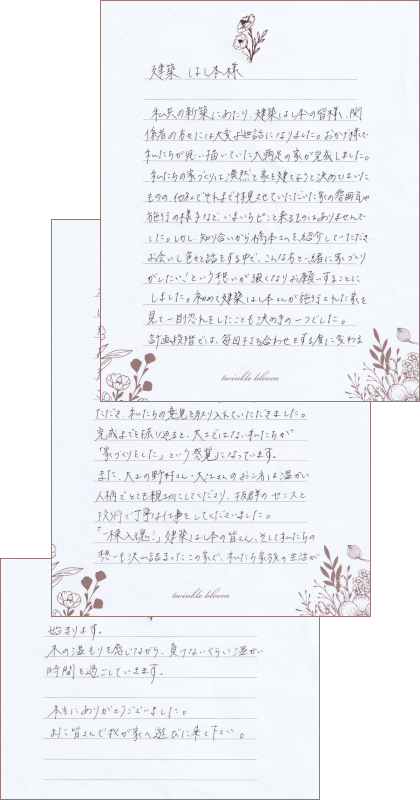 建築 はし本様
私共の新築にあたり、建築はし本の皆様、関
係者の方々には大変お世話になりました。おかげ様で
私たちが思い描いていた大満足の家が完成しました。
私たちの家づくりは漠然と家を建てようと決めてはいた
ものの、他社でそれまで拝見させていただいた家の雰囲気や
施行の様子など、いまいちピンと来るものはありませんで
した。しかし、知り合いから橋本さんを紹介していただき
お会いし色々と話をする中で、こんな方と一緒に家づくり
がしたい!という想いが強くなりお願いすることに
しました。初めて建築はし本さんが施行された家を
見て一目惚れをしたことも決めるの一つでした。
計画段階では、毎回打ち合わせをする度に変わる
twinkle bloom
ただき、私たちの意見を取り入れていただきました。
完成までを振り返ると、大工ではない私たちが
「家づくりをした」という感覚になっています。
また、大工の野村さん・大江さんのお二方は温かい
人柄でとても親切にしてくださり、抜群のセンスと
技術で丁寧な仕事をしてくださいました。
「一棟入魂!」建築はし本の皆さん、そして私たちの
想いも沢山詰まったこの家で、私たち家族の生活が
twinkle bloom
始まります。
木の温もりを感じながら、負けないくらい温かい
時間を過ごしていきます。
本当にありがとうございました。
また皆さんで我が家へ遊びに来て下さい。